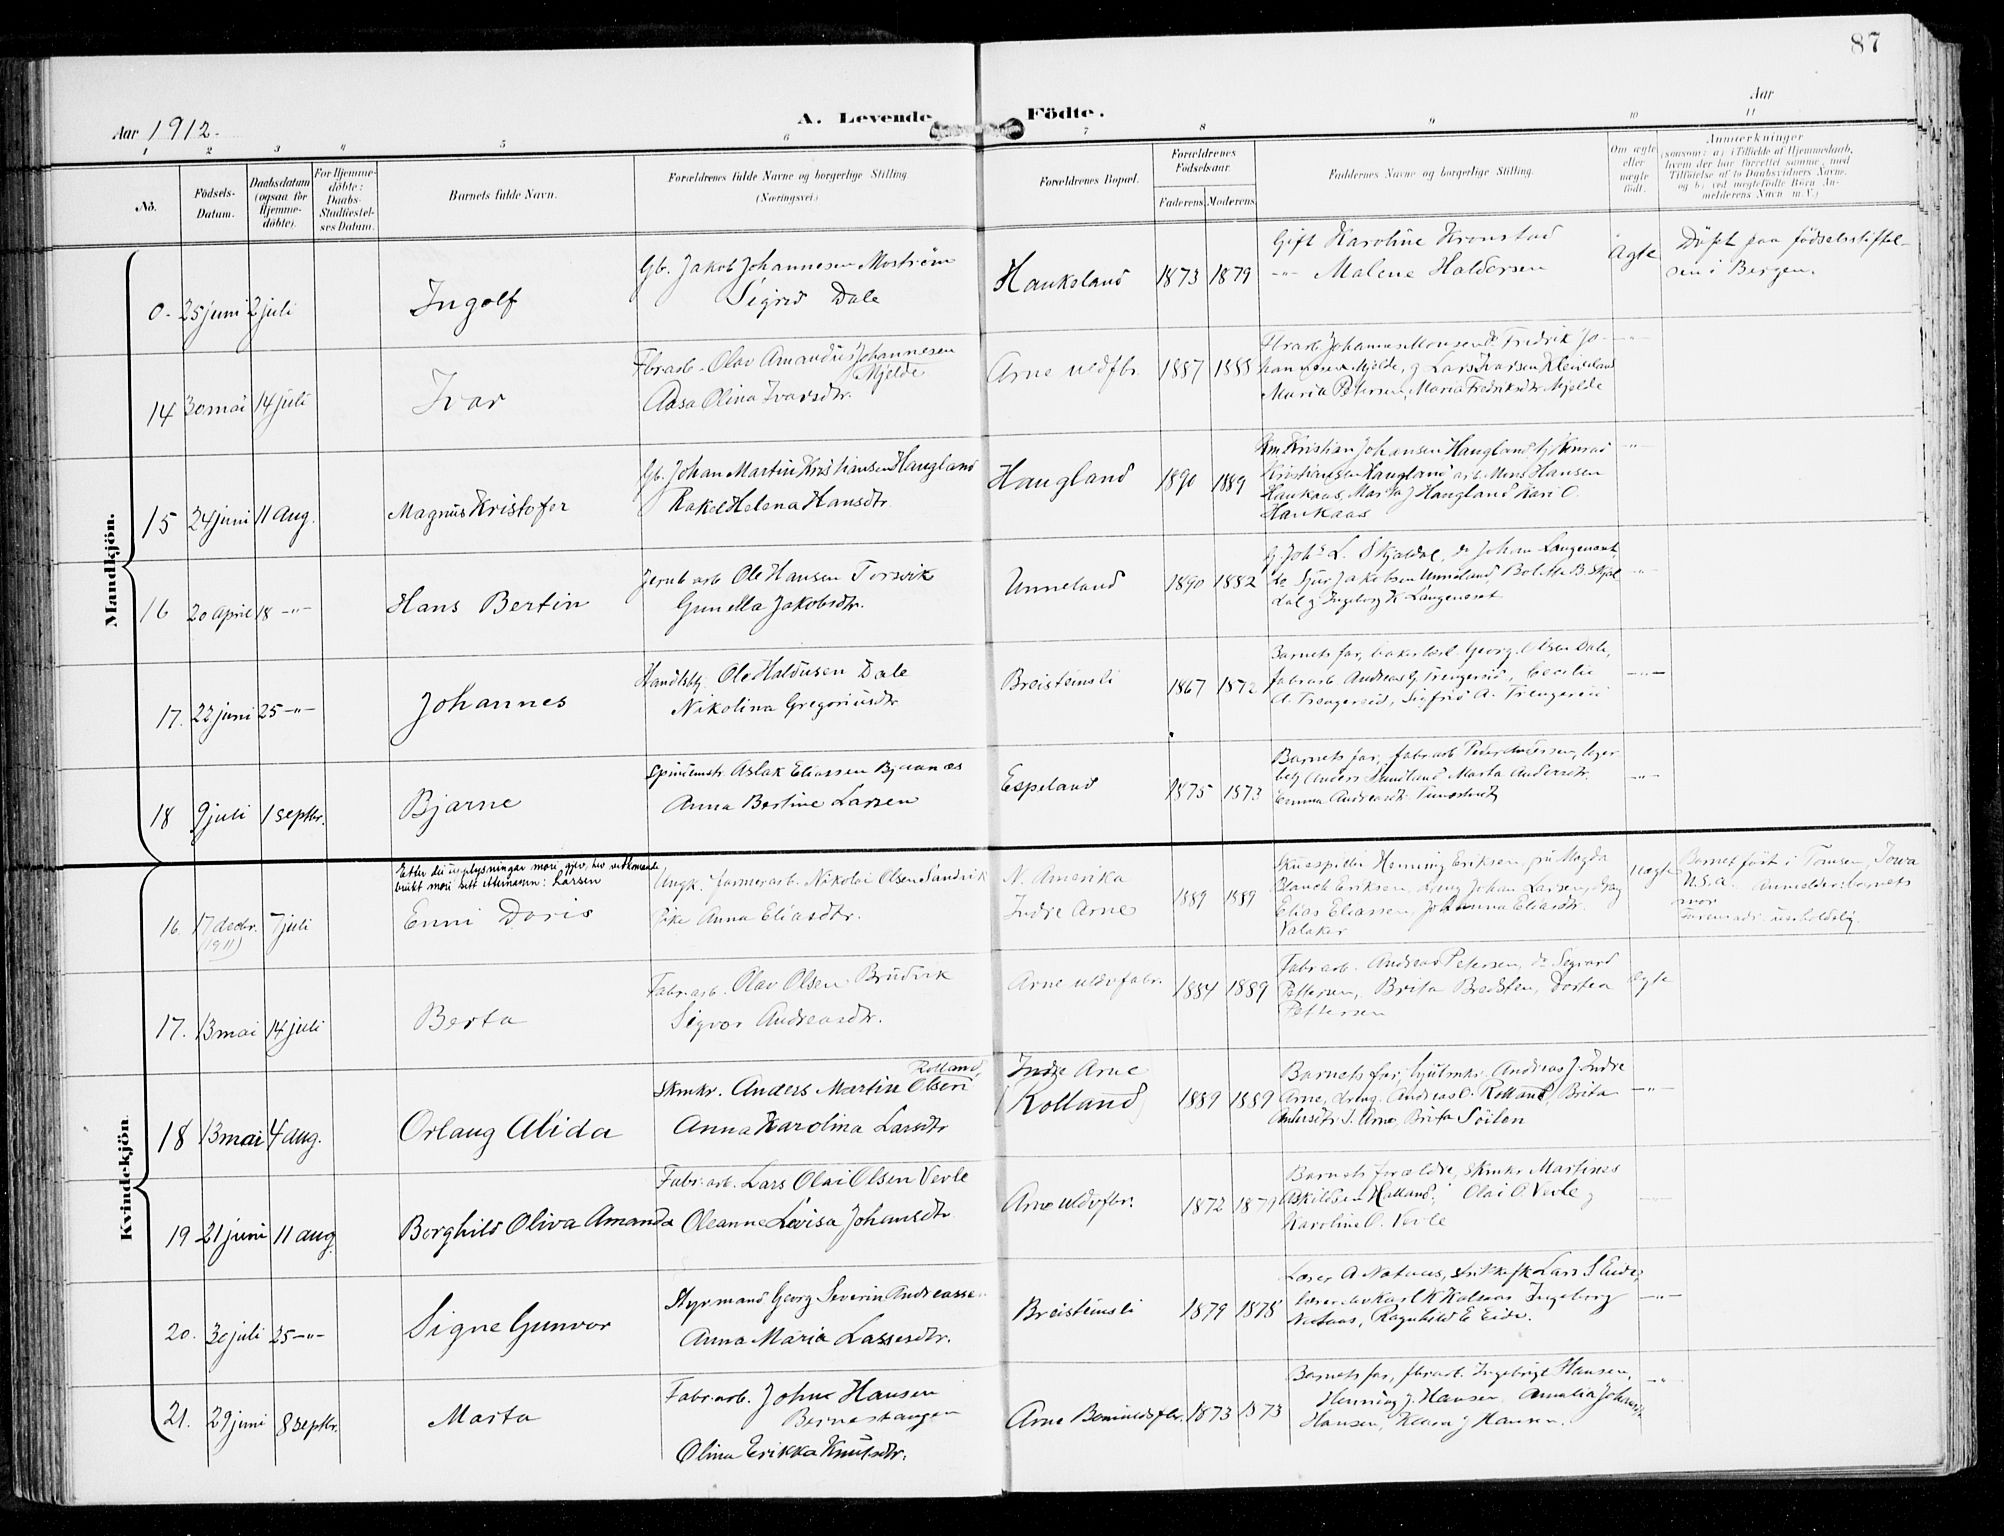 87
Aar 1912.
A. Levende Födte.
Aar
1 2 3 4 5 6 7 8 9 10 11
No.
Födsels-
Datum.
Daabsdatum
(ogsaa for
Hjemme-
döbte).
For Hjemme-
döbte:
Daabs-
Stadfæstel-
ses Datum.
Barnets fulde Navn.
Forældrenes fulde Navne og borgerlige Stilling
(Næringsvei.)
Forældrenes Bopæl.
Forældrenes
Födselsaar.
Faderens. Moderens.
Faddernes Navne og borgerlige Stilling.
Om ægte
eller
uægte
födt.
Anmærkninger
(saasom: a) i Tilfælde af Hjemmedaab,
hvem der har forrettet samme, med
Tilföielse af to Daabsvidners Navne,
og b) ved uægteködte Börn An-
melderens Navn m. V.)
Mandkjön.
0. 25 juni 2 juli
Ingolf
Gb. Jakob Johannesen Moström
Sigrid Dale
Haukeland 1873 1879
Gift Karoline Kronstad
-"- Malene Haldorsen
Ægte
Döpt paa födselsstiftel-
sen i Bergen.
14 30 mai 14 juli
Ivar
Fbrarb. Olav Amandus Johannesen
Mjelde
Aasa Olina Ivarsdtr.
Arne uldfbr. 1887 1888
Fbrarb. Johannes Monsen Fredrik Jo-
hannesen Mjelde, g Lars Ivarsen Kleiveland
Maria Petersen, Maria Fredriksdtr Mjelde
-"-
15 24 juni 11 Aug.
Magnus Kristofer
Gb. Johan Martin Kristiansen Haugland
Rakel Helena Hansdtr.
Haugland 1890 1889
Kristian Johansen Haugland
Kristiansen Haugland arb. Mons Hansen
Haukaas, Marta J Haugland Kari O.
Haukaas
-"-
16 20 April 18 -"-
Hans Bertin
Jernb arb Ole Hansen Torsvik
Gunilla Jakobsdtr.
Unneland 1890 1882
g. Johs L. Skjeldal, Johan Langeneset
Sjur Jakobsen Unneland Bolette B. Skjel
dal g Ingeborg K Langeneset
-"-
17. 22 juni 25 -"-
Johannes
Handlsbtj. Ole Haldusen Dale
Nikolina Gregoriusdtr.
Breisteinsli 1867 1872
Barnets far, bakerlærl. Georg Olsen Dale,
fabrarb Andreas G Trengereid, Cecilie
A. Trengereid, Sigfrid A. Trengereid
-"-
18 9 juli 1 septbr.
Bjarne
Spindemstr. Aslak Eliassen Bjaanæs
Anna Bertine Larsen
Espeland 1875 1873
Barnets far, fabrarb Peder Andersen, lager
betj Anders Sundland Marta Andersdtr.
Emma Andreasdtr.
-"-
Kvindekjön
Etter dei uplysningar mori gjev, hev vedkomande
brukt mori sitt etternamn: Larsen
16. 17 decbr. 7 juli
(1911)
Enni Doris
Ungk. farmerarb. Nikolai Olsen Sandvik
Pike Anna Eliasdtr.
N. Amerika
Indre Arne 1889 1889
Skuespiller Henning Eriksen, fru Magda
Blanch Eriksen, dreng Johan Larsen,
Elias Eliassen, Johanna Eliasdtr.
Valaker
uægte
Barnet födt i Tomsen, Iowa
U.S.A. Anmelder: barnets
mor
17. 13 mai 14 juli
Berta
Fabr.arb. Olav Olsen Brudvik
Sigvor Andreasdtr.
Arne uldvfabr. 1884 1889
Fabrarb. Andreas Petersen, do Segvard
Pettersen, Brita Bredsten, Dortea
Pettersen
ægte
18 13 mai 4 aug.
Orlaug Alida
Rolland,
Skmkr. Anders Martin Olsen
Anna Karolina Larsdtr
Indre Arne
(Rolland) 1889 1889
Barnets far, hjulmkr. Andreas J. Indre
Arne, dreng. Andreas O. Rolland, Brita
Andersdtr I. Arne, Brita Söilen
-"-
19 21 juni 11 aug.
Borghild Oliva Amanda
Fabr.arb. Lars Olai Olsen Verle
Oleanne Lovisa Johansdtr
Arne uldvfbr. 1872 1871
Barnets forældre, skmkr Martines
Askildsen Hatland, Olai O. Verle g
Karoline O. Verle
-"-
20. 30 juli 25 -"-
Signe Gunvor
Styrmand Georg Severin Andreassen
Anna Maria Lassesdtr.
Breisteinsli 1879 1875
Lærer A Nataas, Lars S Eide,
lærer Karl K Kalsaas Ingeborg
Nataas, Ragnhild E Eide.
-"-
21. 29 juni 8 septbr.
Marta
Fabr.arb. Johne Hansen
Bernestangen
Olina Erikka Knutsdtr.
Arne Bomuldsfbr. 1873 1873
Barnets far, fbrarb. Ingebrigt Hansen,
Henning J. Hansen, Amalia
Hansen, J Hansen.
-"-